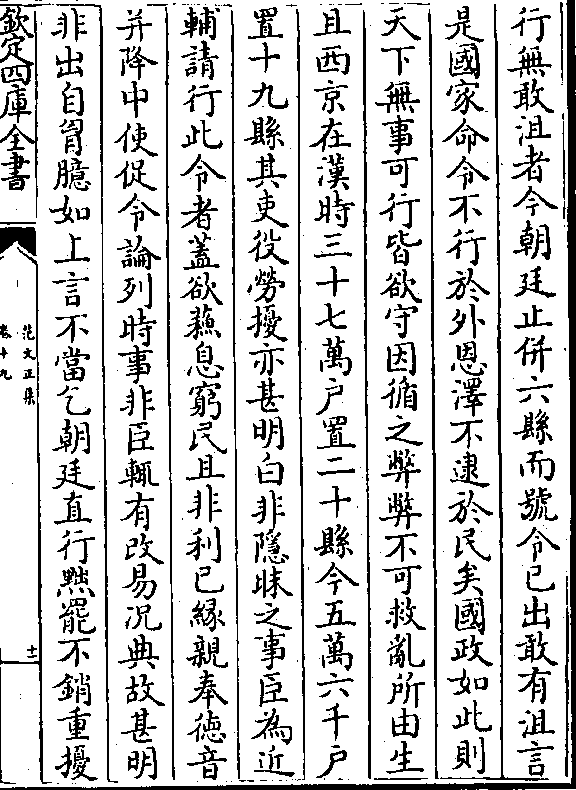 行無敢沮者今朝廷止併六縣而號令已出敢有沮言
是國家命令不行於外恩澤不逮於民矣國政如此則
天下無事可行皆欲守因循之弊弊不可救亂所由生
且西京在漢時三十七萬户置二十縣今五萬六千户
置十九縣其吏役勞擾亦甚明白非隱昧之事臣為近
輔請行此令者蓋欲蘓息窮民且非利已緣親奉徳音
并降中使促令論列時事非臣輒有改易况典故甚明
非出自胷臆如上言不當乞朝廷直行黜罷不銷重擾
欽定四庫全書
范文正集
卷十九
十一